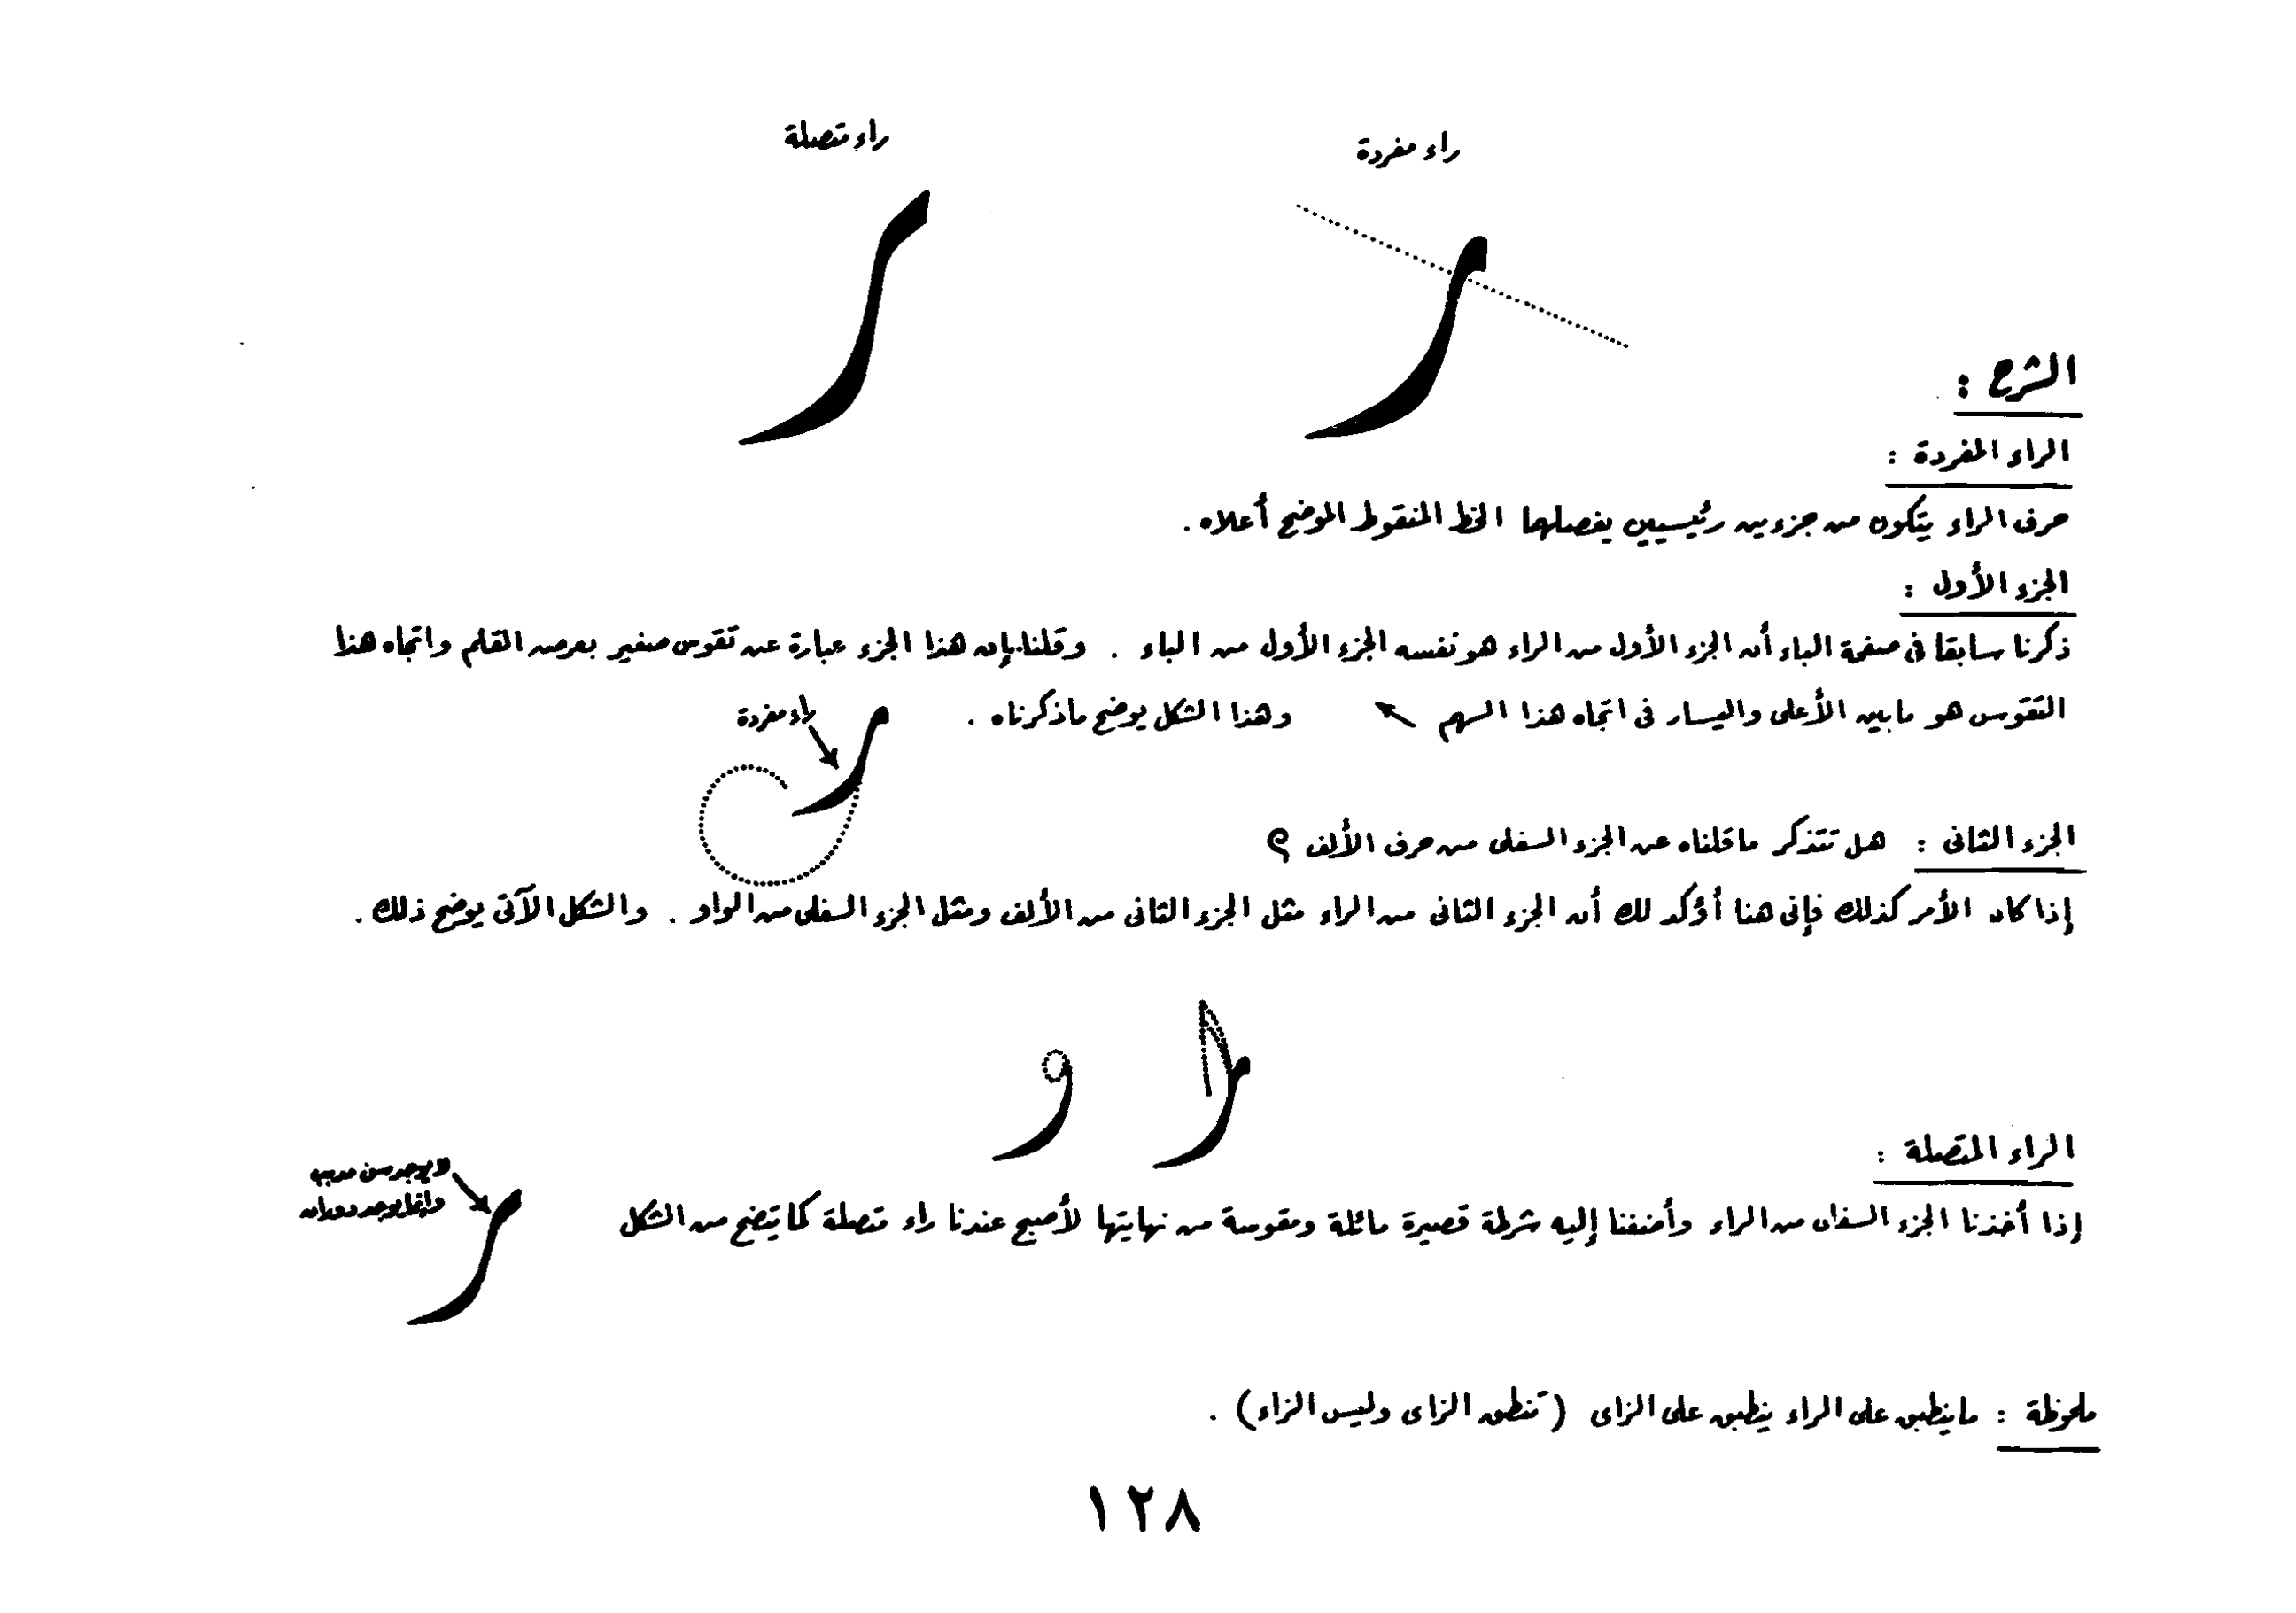 راء مفردة
راء متصلة
الشرح :
الراء المفردة :
حرف الراء يتكون من جزءين رئيسيين يفصلهما الخط المنقوط الموضح أعلاه .
الجزء الأول :
ذكرنا سابقا فى صفحة الباء أن الجزء الأول من الراء هو نفسه الجزء الأول من الباء . وقلنا بإن هذا الجزء عبارة عن تقوس صغير بعرض القلم واتجاه هذا
التقوس هو مابين الأعلى واليسار فى اتجاه هذا السهم ↖ وهذا الشكل يوضح ماذكرناه .
راء مفردة
الجزء الثانى : هل تتذكر ماقلناه عن الجزء السفلى من حرف الألف ؟
إذا كان الأمر كذلك فإنى هنا أؤكد لك أن الجزء الثانى من الراء مثل الجزء الثانى من الألف ومثل الجزء السفلى من الواو . والشكل الآتى يوضح ذلك .
الراء المتصلة :
لا يوجد سن مدبب
وإنما يوجد دوران
إذا أخذنا الجزء السفلى من الراء وأضفنا إليه شرطة قصيرة مائلة ومقوسة من نهايتها لأصبح عندنا راء متصلة كما يتضح من الشكل
ملحوظة : ماينطبق على الراء ينطبق على الزاى (تنطق الزاى وليس الزاء) .
١٢٨